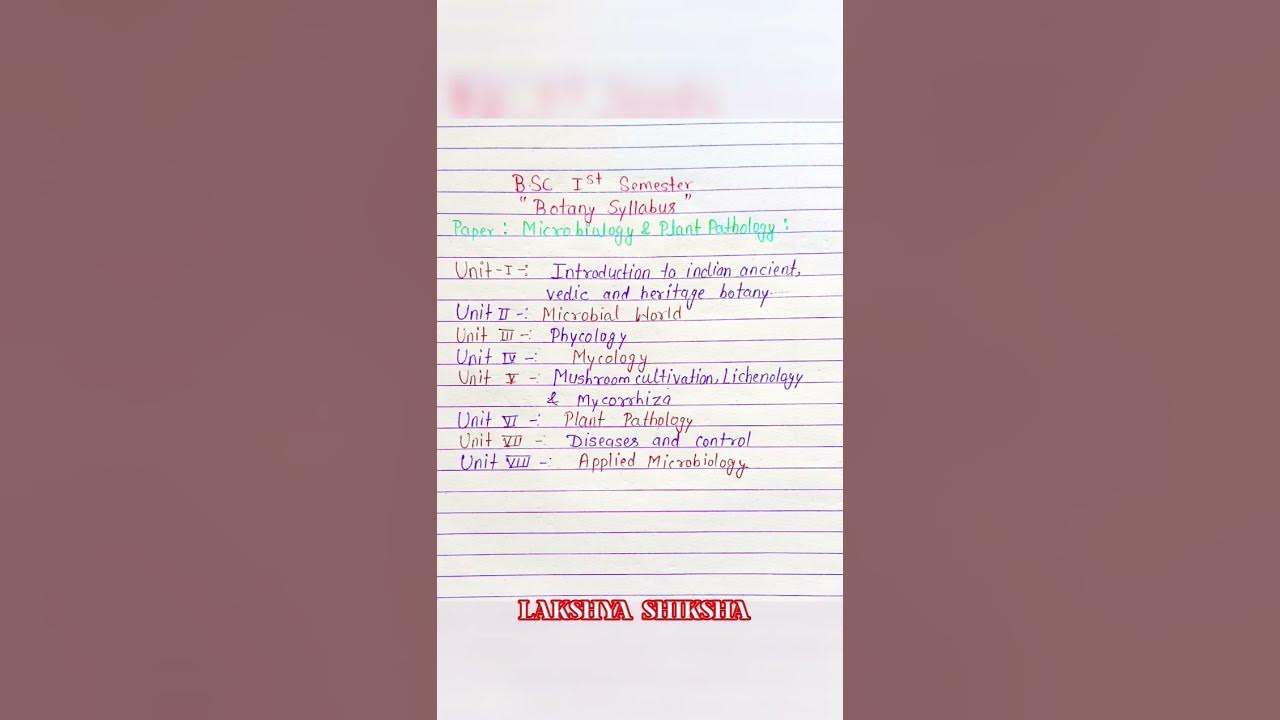 B.SC Ist Semester
"Botany Syllabus"
Paper : Microbialogy & Plant Pathology :
Unit - I -: Introduction to indian ancient,
vedic and heritage botany....
Unit II -: Microbial World
Unit III -: Phycology
Unit IV -: Mycology
Unit V -: Mushroom cultivation, Lichenology
& Mycorrhiza
Unit VI -: Plant Pathology
Unit VII -: Diseases and control
Unit VIII -: Applied Microbiology
LAKSHYA SHIKSHA